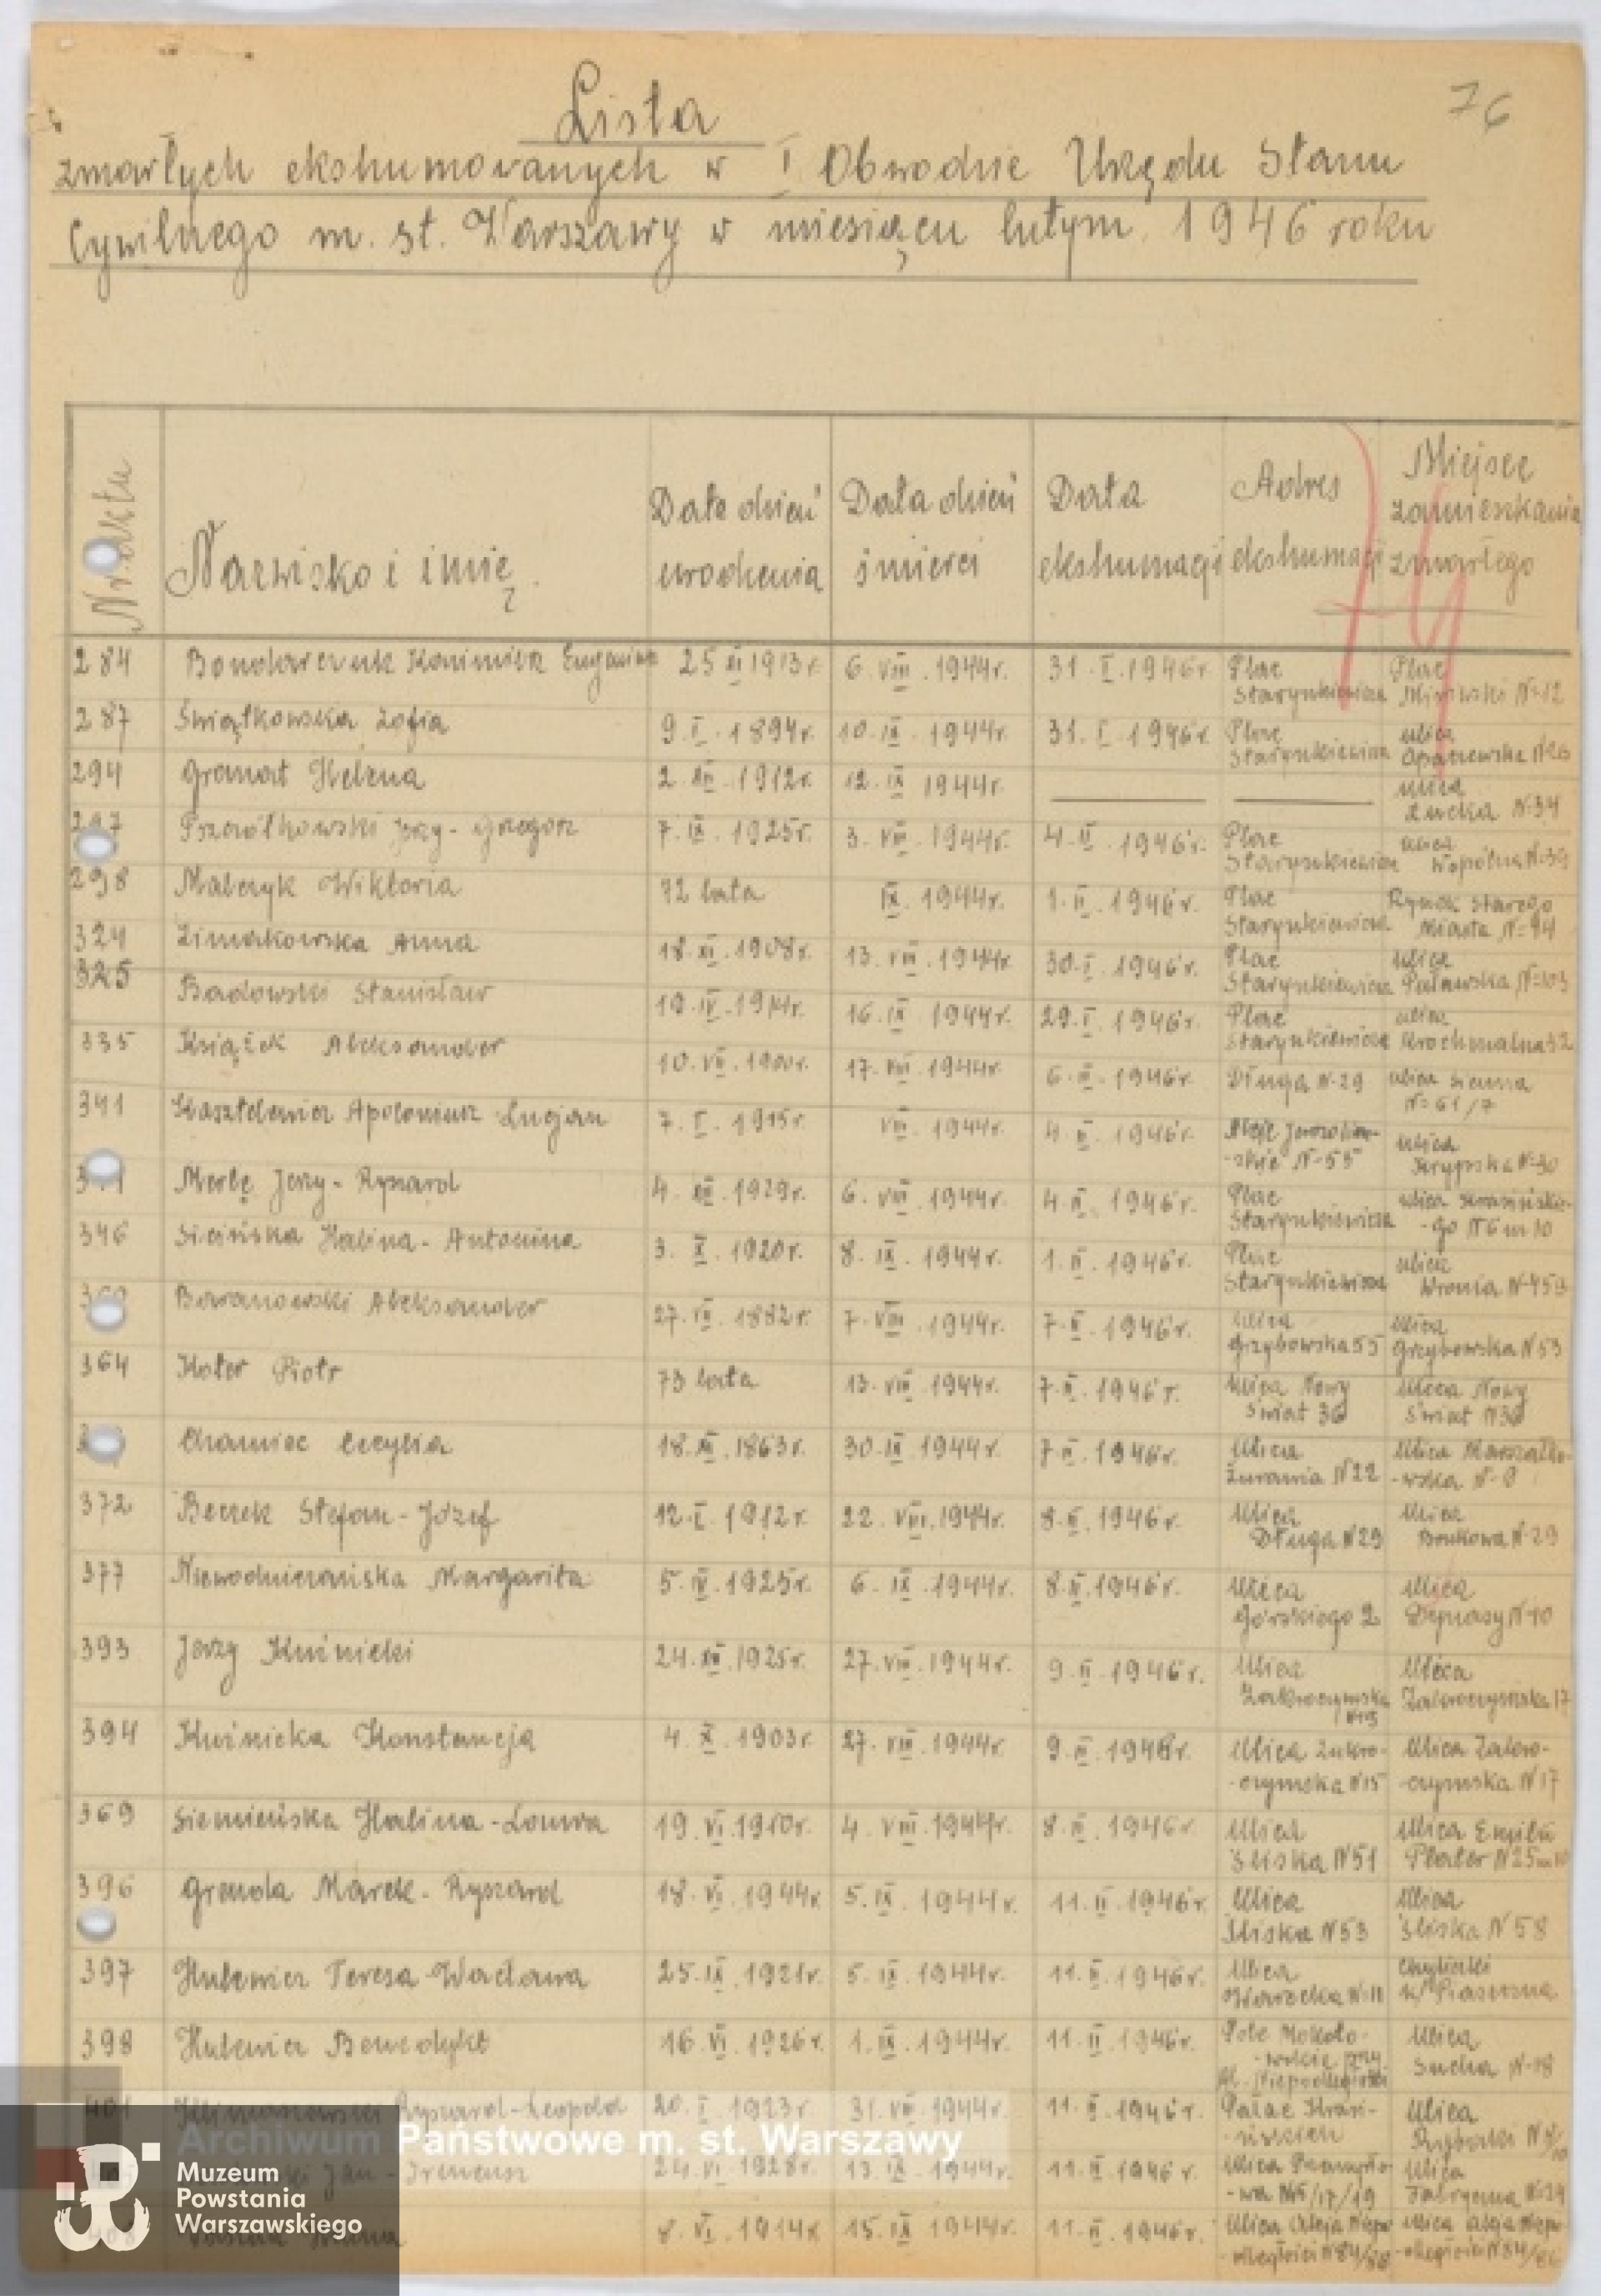 76
Lista
zmarłych ekshumowanych w I Obwodzie Urzędu Stanu
Cywilnego m. st. Warszawy w miesiącu lutym 1946 roku
Nr. aktu
Nazwisko i imię
Data dzień urodzenia
Data dzień śmierci
Data ekshumacji
Adres ekshumacji
Miejsce zamieszkania zmarłego
284 Bondarczuk Kazimierz Eugeniusz 25 XI 1913 r. 6. VIII. 1944 r. 31. I. 1946 r. Plac Starynkiewicza Plac Mirowski N-12
287 Świątkowska Zofia 9. I. 1894 r. 10. IX. 1944 r. 31. I. 1946 r. Plac Starynkiewicza ulica Opaczewska
294 Granat Helena 2. XII. 1912 r. 12. IX 1944 r. ulica Łucka N-34
Jerzy-Grzegorz 7. IX. 1925 r. 3. VIII. 1944 r. 4. II. 1946 r. Plac Starynkiewicza ulica Wspólna
298 Malczyk Wiktoria 72 lata IX. 1944 r. 1. II. 1946 r. Plac Starynkiewicza Rynek Starego Miasta
324 Zimakowska Anna 18. XI. 1908 r. 13. VIII. 1944 r. 30. I. 1946 r. Plac Starynkiewicza ulica Puławska N-103
325 Badowski Stanisław 19. IV. 1914 r. 16. IX 1944 r. 29. I. 1946 r. Plac Starynkiewicza ulica Krochmalna 52
335 Książek Aleksander 10. VII. 17. VIII. 1944 r. 6. II. 1946 r. Długa N-29 ulica Sienna N=61/7
341 Kasztelewicz Apoloniusz Lucjan 7. I. 1915 r. VIII. 1944 r. 4. II. 1946 r. Aleje Jerozolim-skie N-55 ulica
Jerzy-Ryszard 4. XII. 1929 r. 6. VIII. 1944 r. 4. II. 1946 r. Plac Starynkiewicza ulica Krasińskie-go N 6 m 10
346 Sicińska Halina-Antonina 3. X. 1920 r. 8. IX. 1944 r. 1. II. 1946 r. Plac Starynkiewicza ulica Wronia
Baranowski Aleksander 27. VII. 1882 r. 7. VIII. 1944 r. 7. II. 1946 r. ulica Grzybowska 55 ulica Grzybowska N 53
364 Koter Piotr 73 lata 13. VIII. 1944 r. 7. II. 1946 r. Ulica Nowy Świat 36 Ulica Nowy Świat N 36
Chamiec Cecylia 18. XI. 1863 r. 30. IX. 1944 r. 7. II. 1946 r. Ulica Żurawia N 22 Ulica Marszałko-wska N-9
372 Beczek Stefan-Józef 12. I. 1912 r. 22. VIII. 1944 r. 8. II. 1946 r. Ulica Długa N 29 Ulica Brukowa N-29
377 Niewodniczańska Margarita 5. IV. 1925 r. 6. IX. 1944 r. 8. II. 1946 r. Ulica Górskiego 2 Ulica Dynasy N-10
393 Jerzy Kuźnicki 24. XII. 1925 r. 27. VIII. 1944 r. 9. II. 1946 r. Ulica Zakroczymska N 15 Ulica Zakroczymska 17
394 Kuźnicka Konstancja 4. X. 1903 r. 27. VIII. 1944 r. 9. II. 1946 r. Ulica Zakro-czymska N 15 Ulica Zakro-czymska N 17
369 Siemieńska Halina-Laura 19. VI. 1910 r. 4. VIII. 1944 r. 8. II. 1946 r. Ulica Śliska N 51 Ulica Emilii Plater N 25 m 10
396 Grenda Marek-Ryszard 18. VI. 1944 r. 5. IX. 1944 r. 11. II. 1946 r. Ulica Śliska N 53 Ulica Śliska N 58
397 Hulewicz Teresa-Wacława 25. IX. 1921 r. 5. IX. 1944 r. 11. II. 1946 r. Ulica Warecka N-11 Chyliczki k/Piaseczna
398 Hulewicz Benedykt 16. VI. 1926 r. 1. IX. 1944 r. 11. II. 1946 r. Pole Mokoto-wskie przy Al. Niepodległości Ulica Sucha N-18
401 Klimaszewski Ryszard-Leopold 20. I. 1923 r. 31. VIII. 1944 r. 11. II. 1946 r. Pałac Krasi-ńskich Ulica Rybaki
Jan-Ireneusz 24. VI. 1928 r. 13. IX. 1944 r. 11. II. 1946 r. Ulica Przemysło-wa Ulica Fabryczna
8. VI. 1914 r. 15. IX 1944 r. 11. II. 1946 r. Ulica Aleja Niepo-dległości N 84/86 Ulica Aleja Niepo-dległości N 84/86
Archiwum Państwowe m. st. Warszawy
Muzeum
Powstania
Warszawskiego